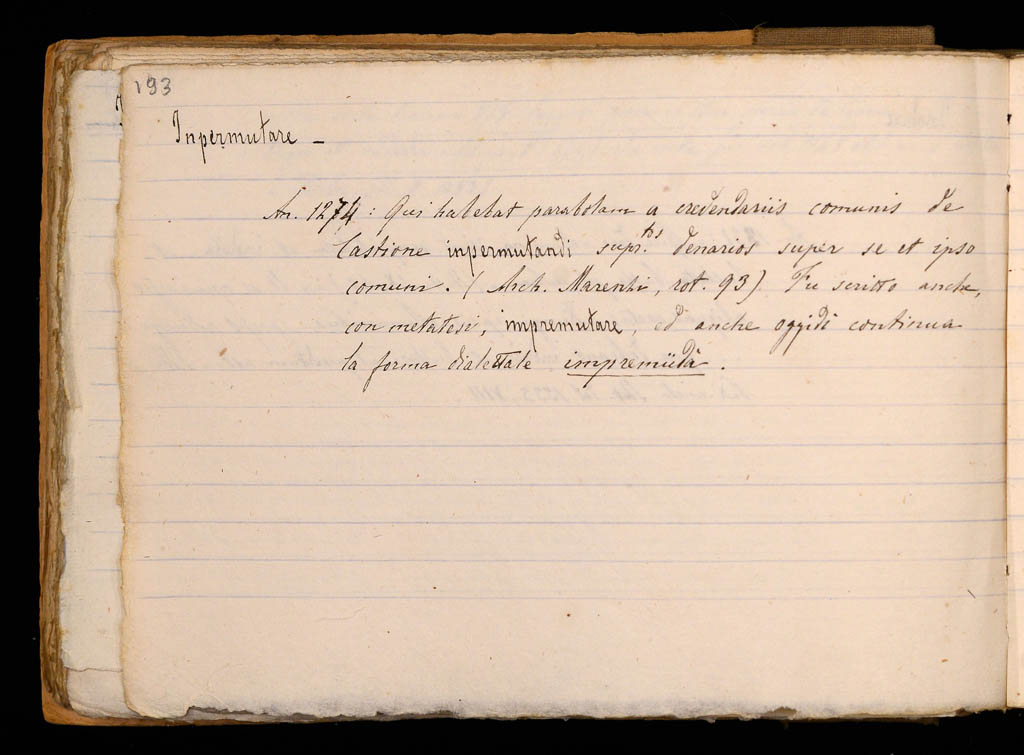 193
Inpermutare –
An. 1274: Qui habebat parabolam a credendariis comunis de
Castione inpermutandi supr.tos denarios super se et ipso
comuni. (Arch. Marenti, rot. 93). Fu scritto anche,
con metatesi, impremutare, ed anche oggidì continua
la forma dialettale impremüdà.